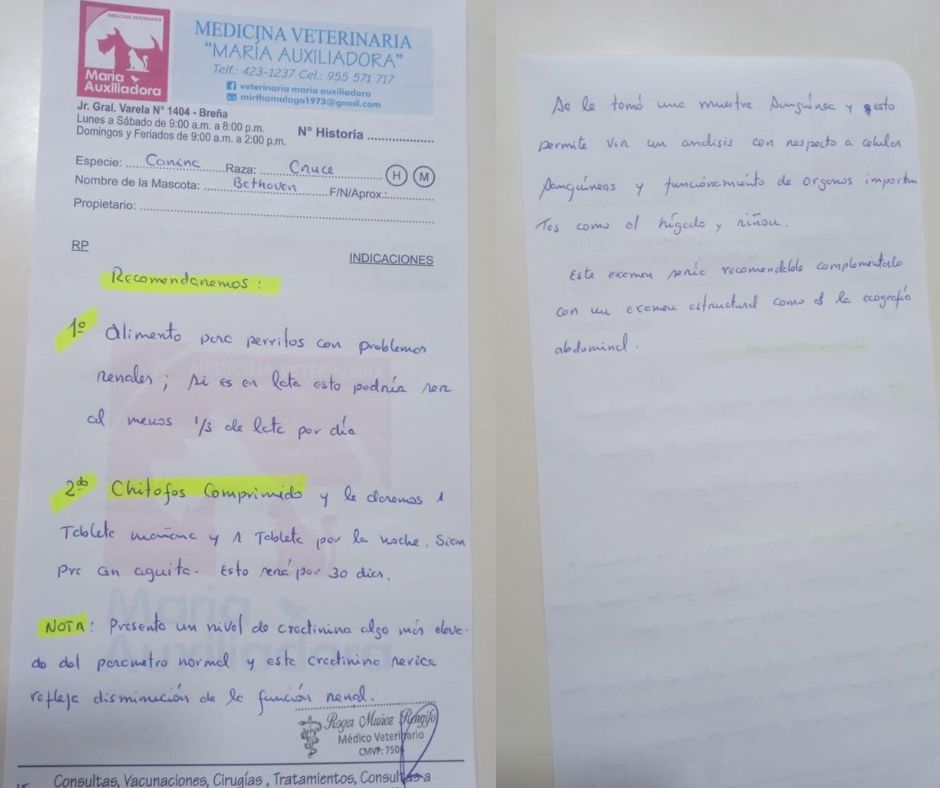 MEDICINA VETERINARIA
Maria
Auxiliadora
MEDICINA VETERINARIA
"MARÍA AUXILIADORA"
Telf.: 423-1237 Cel.: 955 571 717
veterinaria maria auxiliadora
mirthamalaga1973@gmail.com
Jr. Gral. Varela N° 1404 - Breña
Lunes a Sábado de 9:00 a.m. a 8:00 p.m.
Domingos y Feriados de 9:00 a.m. a 2:00 p.m.
N° Historia
Especie: Canino Raza: Cruce H M
Nombre de la Mascota: Bethoven F/N/Aprox.:
Propietario:
RP
INDICACIONES
Recomendaremos:
1º Alimento para perritos con problemas
renales; si es en lata esto podría ser
al menos 1/3 de lata por día
2do Chitofos Comprimido y le daremos 1
Tableta mañana y 1 Tableta por la noche. Siem
pre con aguita. Esto será por 30 días.
NOTA: Presento un nivel de creatinina algo más eleva-
do del parametro normal y esta creatinina serica
refleja disminución de la función renal.
Roger Muñoz Rengifo
Médico Veterinario
CMVP: 750
Consultas, Vacunaciones, Cirugías, Tratamientos, Consultas a
Se le tomó una muestra Sanguínea y esto
permite ver un analisis con respecto a celulas
Sanguíneas y funcionamiento de organos importan
Tes como el hígado y riñon.
Este examen seria recomendable complementarlo
con un examen estructural como es la ecografía
abdominal.